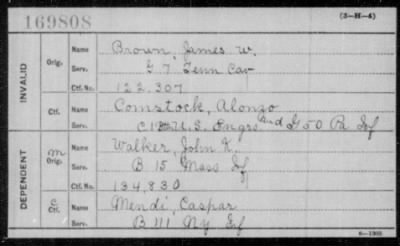 169808
(3-H-4)
INVALID
Orig.
Name Brown, James W.
Serv. G 7 Tenn Cav
Ctf. No. 122,307
Ctf.
Name Comstock, Alonzo
Serv. C U.S. Engrs and G 50 Pa Inf
DEPENDENT
M
Orig.
Name Walker, John K.
Serv. B 15 Mass Inf
Ctf. No. 134,830
C
Ctf.
Name Mendi, Caspar
Serv. B 111 Ny Inf